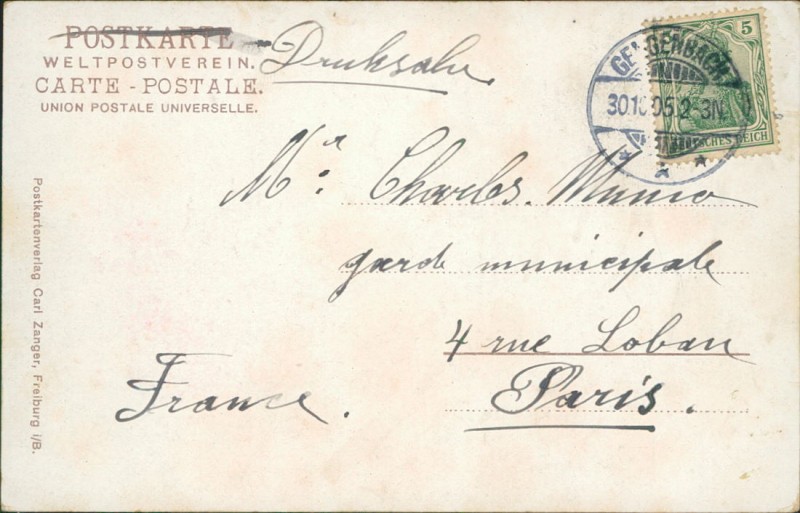 POSTKARTE
WELTPOSTVEREIN.
CARTE - POSTALE.
UNION POSTALE UNIVERSELLE.
Drucksache
5
GENGENBACH
30.10.05.2-3N.
DEUTSCHES REICH
Mr. Charles. Munio
gard municipale
4 rue Lobau
Paris.
France.
Postkartenverlag Carl Zanger, Freiburg i/B.